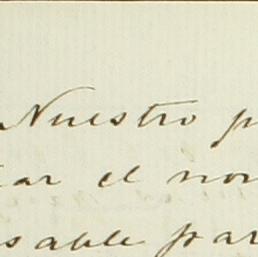 Nuestro p
ar el nom
sable par